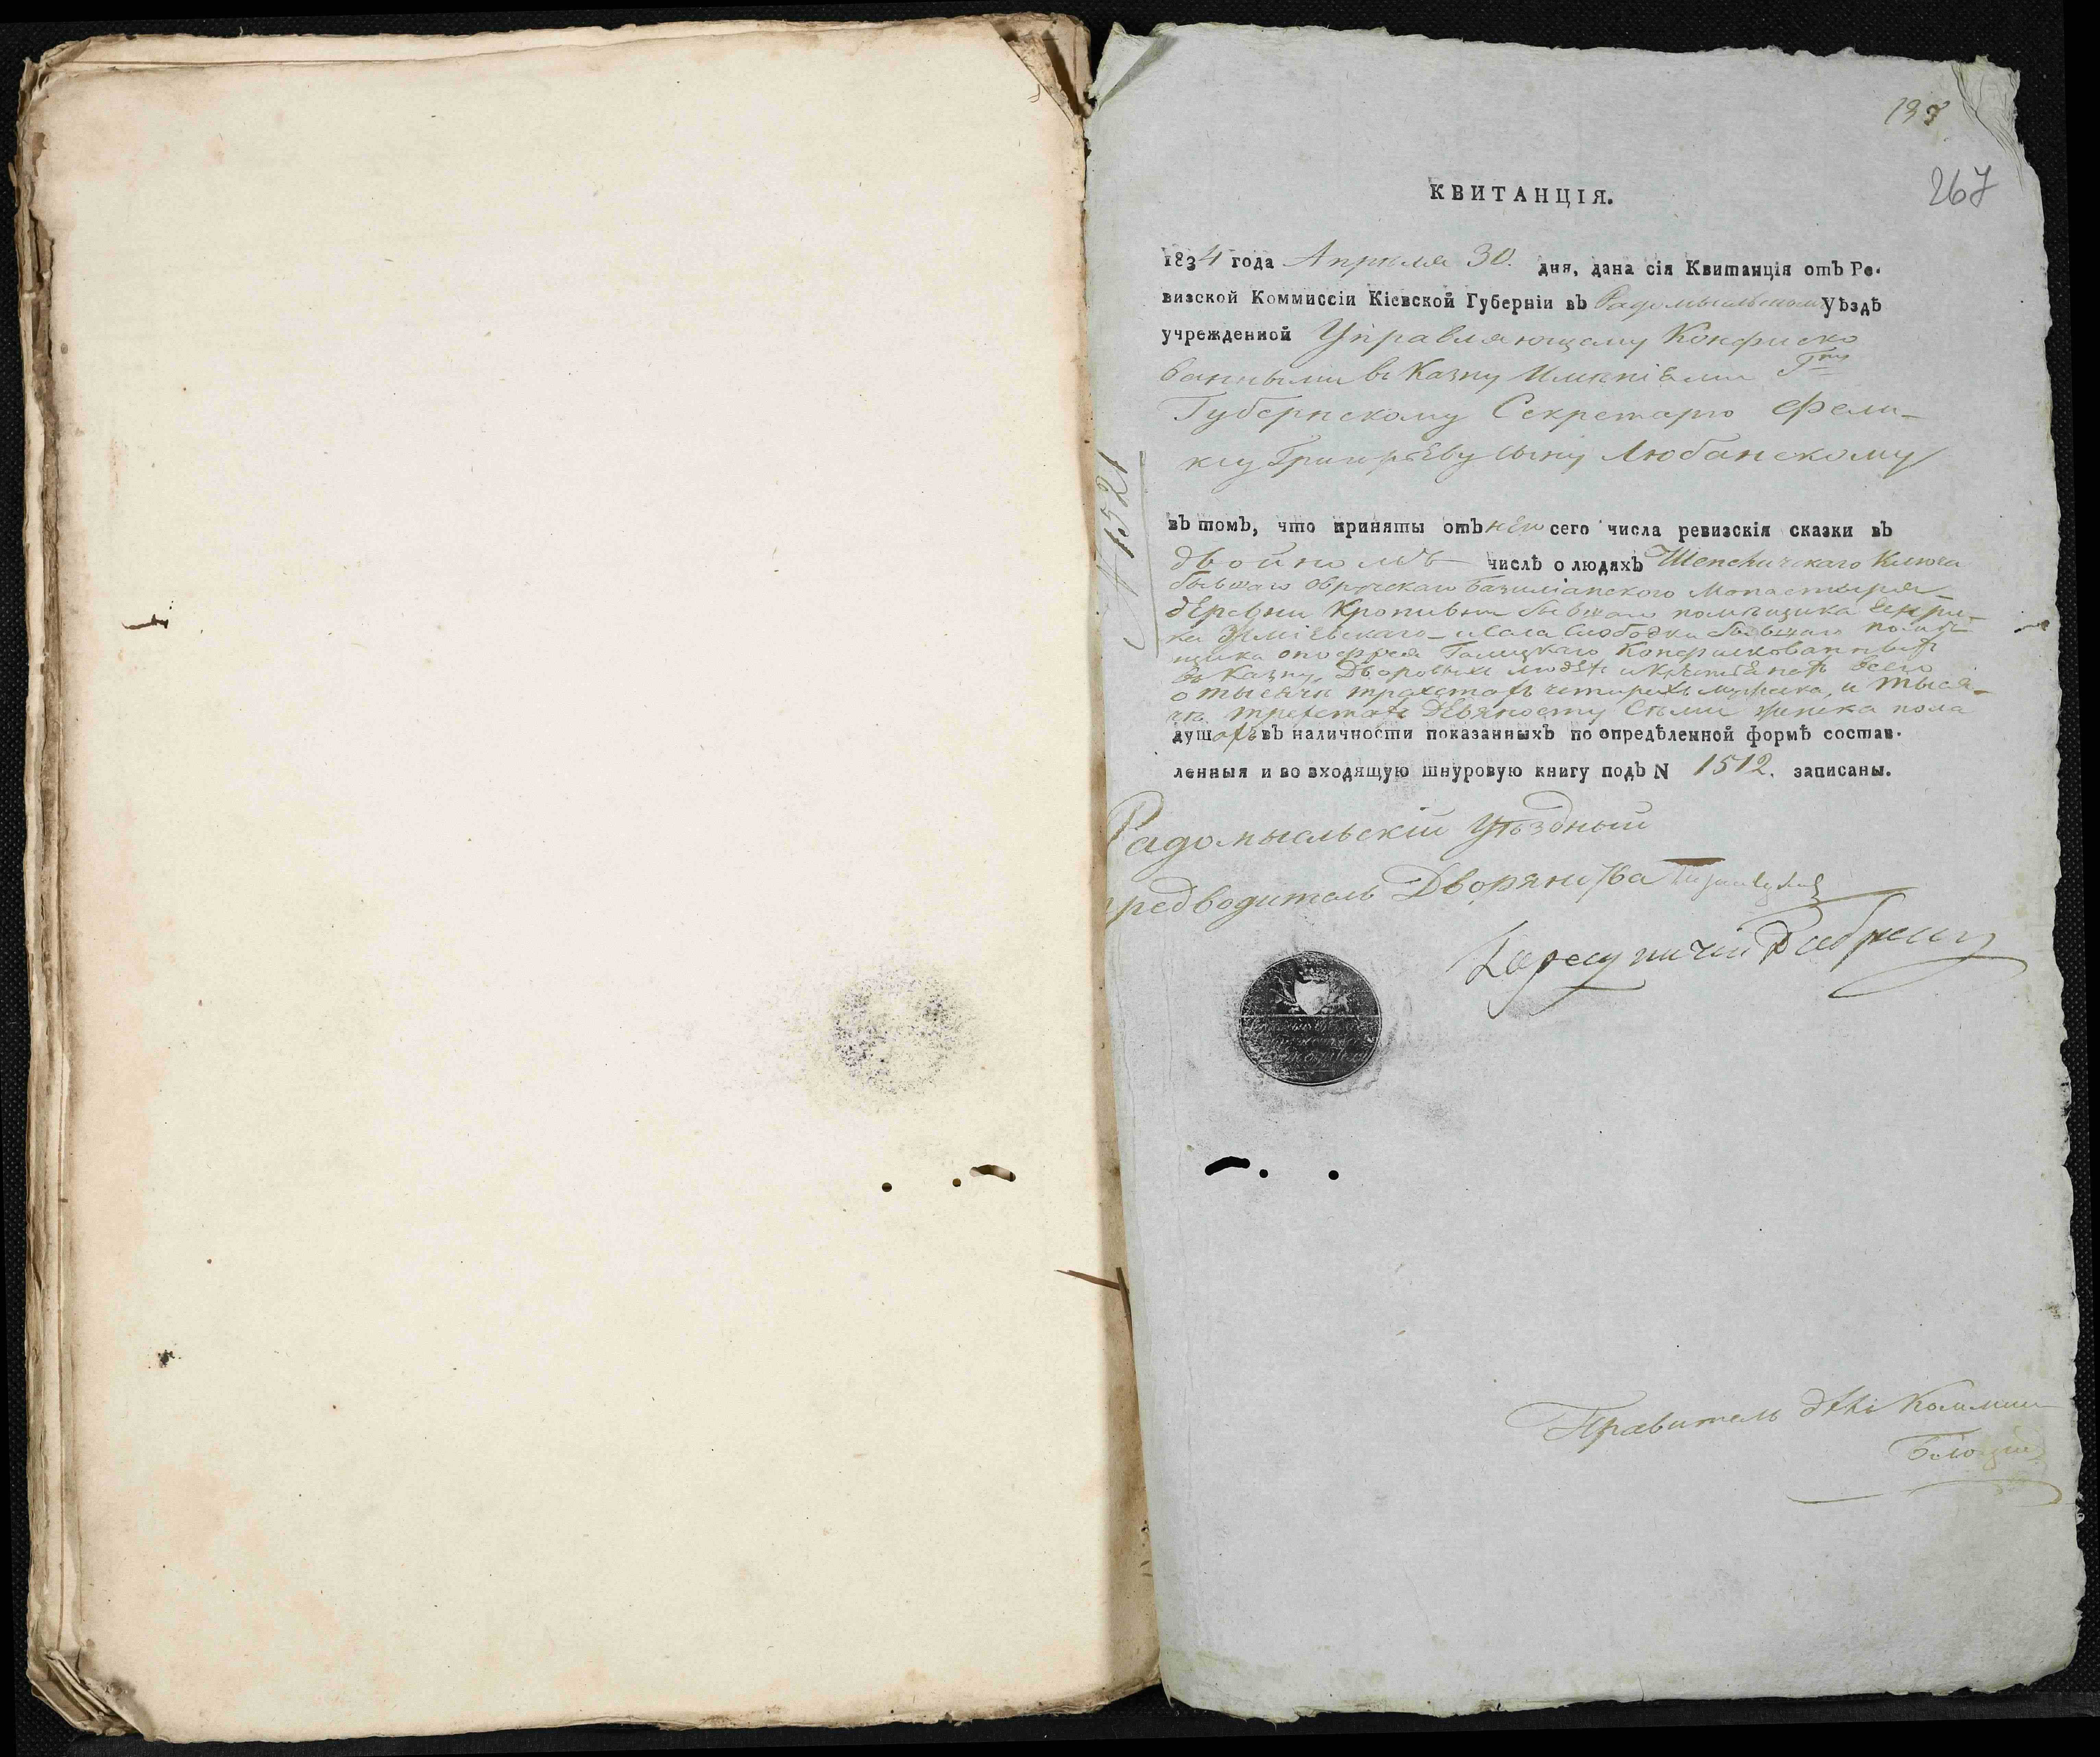 133
267
КВИТАНЦІЯ.
1834 года Апрѣля 30. дня, дана сія Квитанція отъ Ре-
визской Коммиссіи Кіевской Губерніи въ Радомысльскомъ Уѣздѣ
учрежденной Управляющему Конфиско
ванными въ Казну Имѣніями Г-ну
Губернскому Секретарю Фели-
ксу Григорьеву сыну Любанскому
№ 1521
въ томъ, что приняты отъ него сего числа ревизскія сказки въ
двойномъ числѣ о людяхъ Шепеличскаго Ключа
бывшаго Овручскаго Базиліанскаго Монастыря-
деревни Кропивни бывшаго помѣщика Генри-
ка села Слободки бывшаго помѣ-
щика Онофрея Галецкаго Конфискованныхъ
въ Казну, Дворовыхъ людей и Крестьянъ всего
о тысячи трехстахъ четырехъ мужеска, и тыся-
чи трехстахъ девяносту семи женска пола
душахъ въ наличности показанныхъ по опредѣленной формѣ состав-
ленныя и во входящую шнуровую книгу подъ N 1512. записаны.
Радомысльскій Уѣздный
предводитель Дворянства
Правитель дѣлъ Коммиссіи